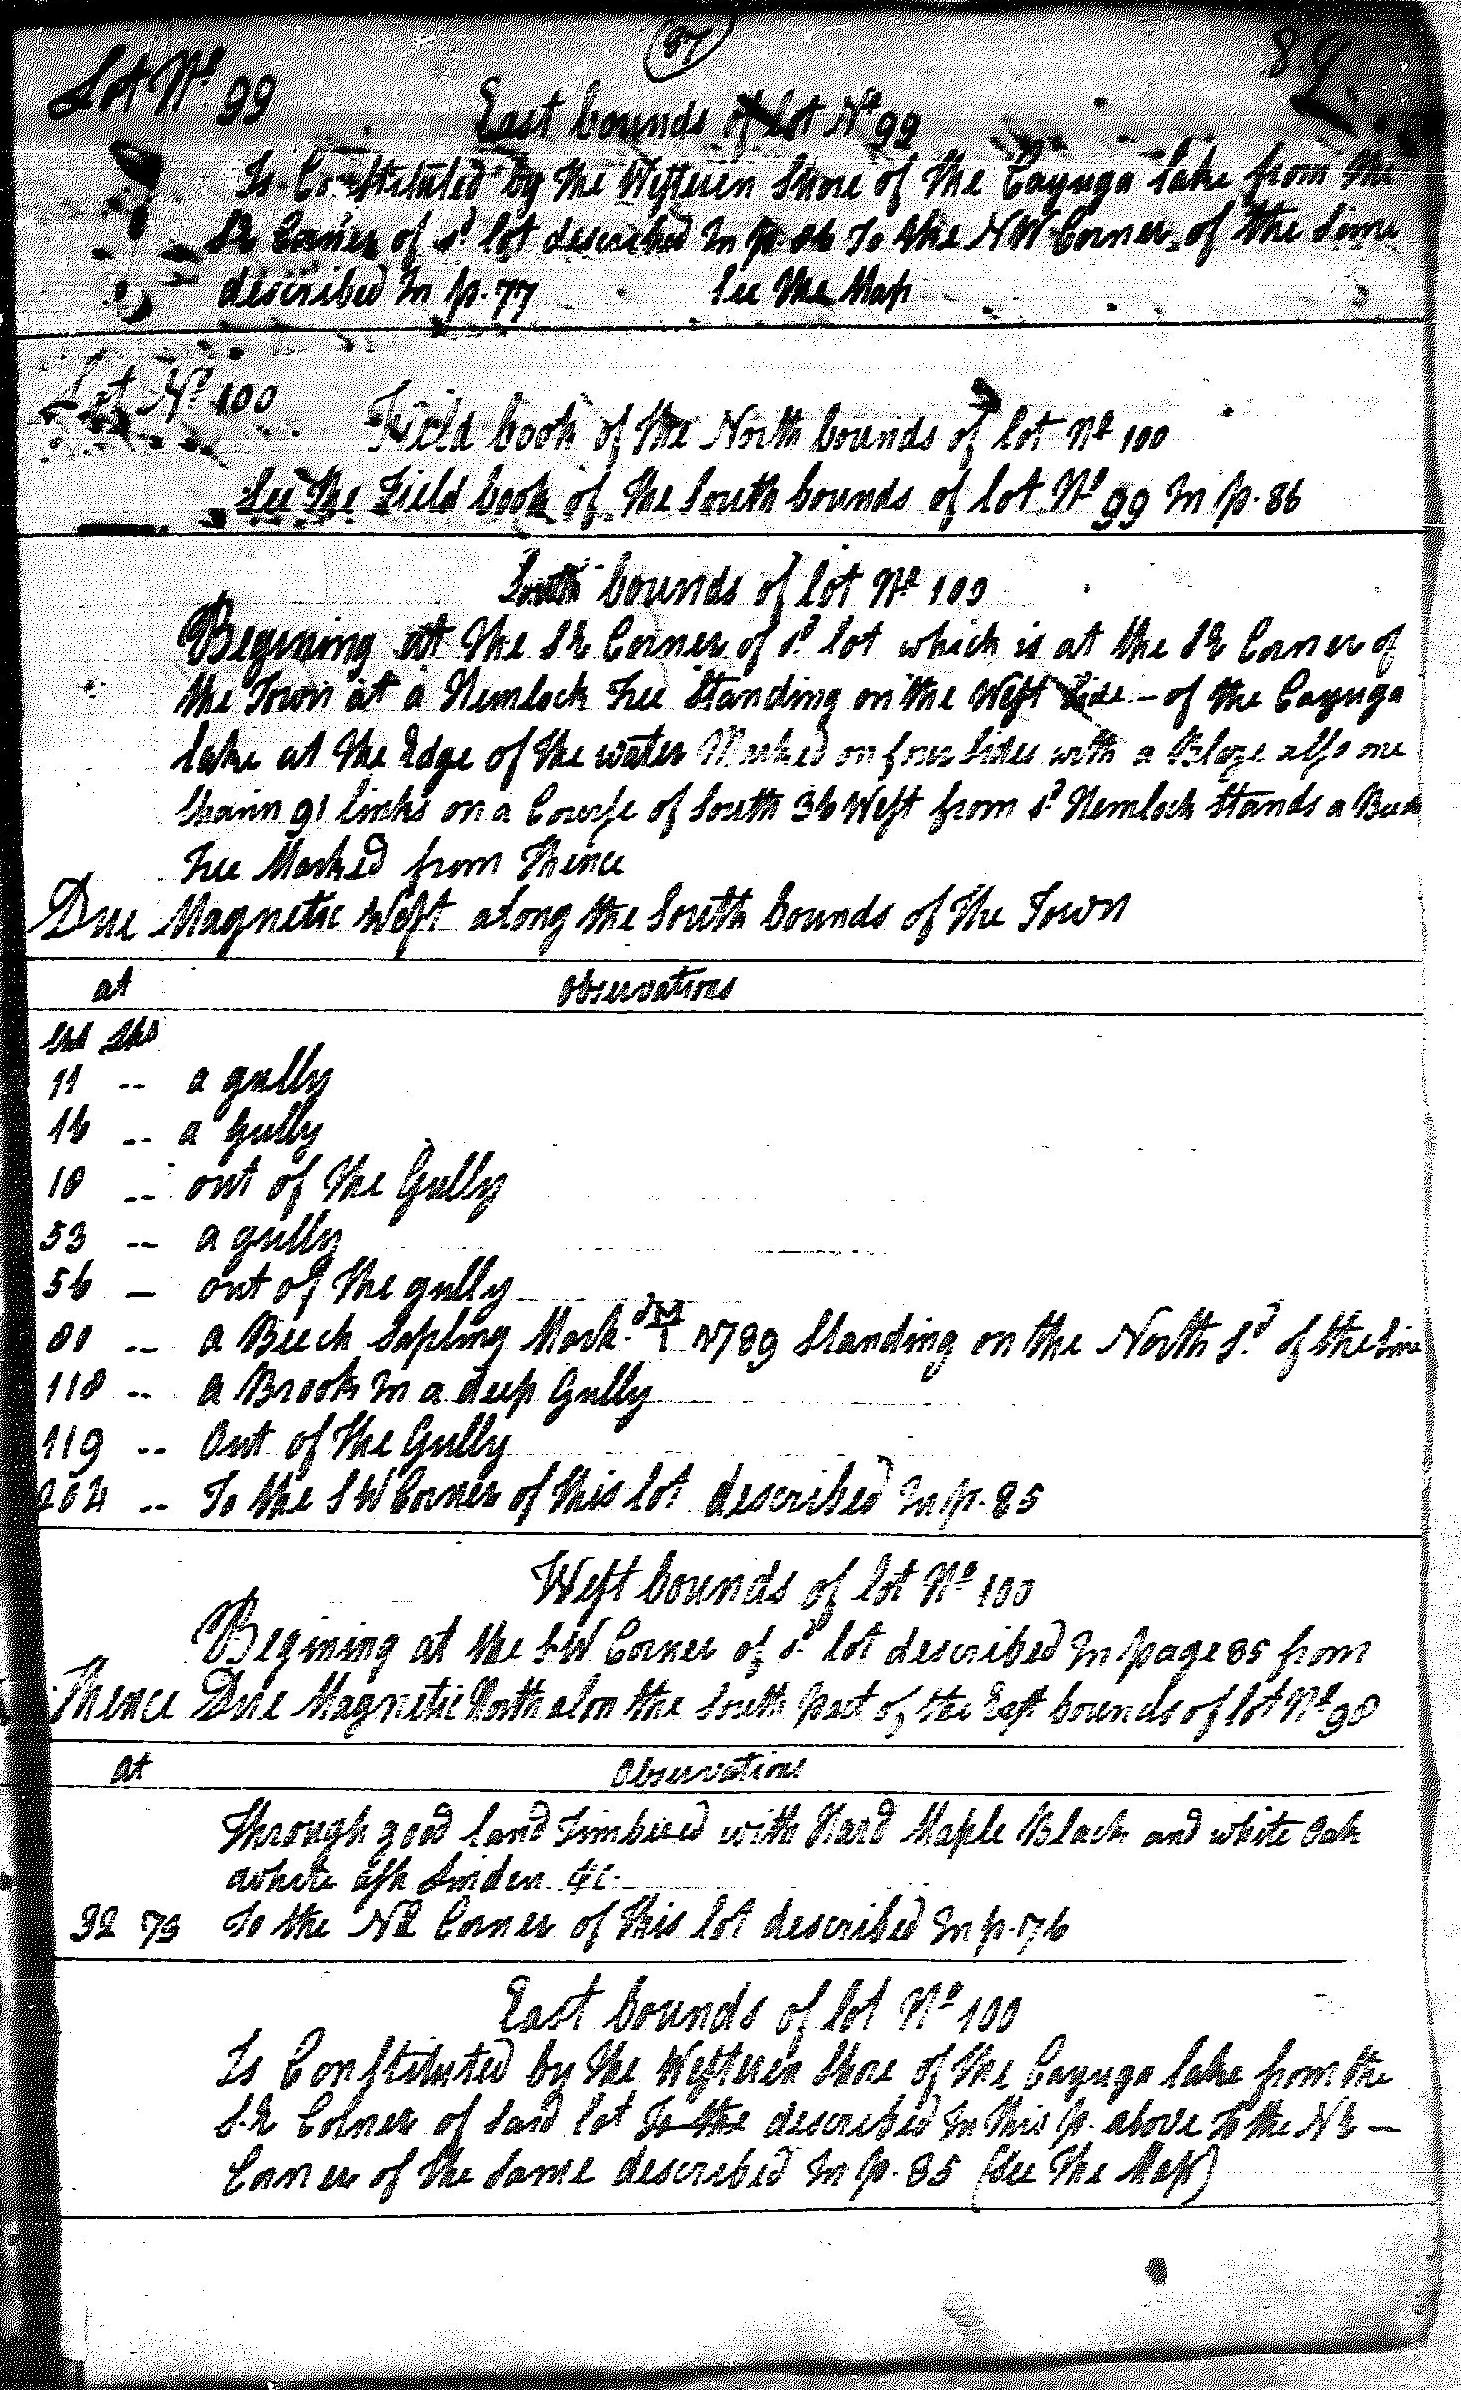 87
Lot No 99
East bounds of lot No 99
Is Constituted by the Western Shore of the Cayuga lake from the
SE Corner of sd lot described In p. 86 To the NW Corner of the Same
described In p. 77 See the Map
Lot No 100
Field book of the North bounds of lot No 100
See the Field book of the South bounds of lot No 99 In p. 86
South bounds of lot No 100
Begining at the SE Corner of sd lot which is at the SE Corner of
the Town at a Hemlock Tree Standing on the West Side - of the Cayuga
lake at the Edge of the water Marked on four Sides with a Blaze also one
Chain 91 links on a Course of South 36 West from sd Hemlock Stands a Beech
Tree Marked from Thence
Due Magnetic West along the South bounds of the Town
at Observations
Chs Lks
11 -- a gully
16 -- a Gully
18 -- out of the Gully
53 -- a gully
56 -- out of the gully
80 -- a Beech Sapling Mark.d 1789 Standing on the North Sd of the Line
118 -- a Brook In a deep Gully
119 -- Out of the Gully
204 -- To the SW Corner of this lot described In p. 85
West bounds of lot No 100
Begining at the SW Corner of sd lot described In page 85 from
Thence Due Magnetic North alon the South part of the East bounds of lot No 98
At Observations
Through good land Timbered with Hard Maple Black and white Oak
white ash Linden &c.
32 73 To the NE Corner of this lot described In p. 76
East bounds of lot No 100
Is Constituted by the Western Shore of the Cayuga lake from the
SE Corner of said lot To the described In this p. above To the NE -
Corner of the Same described In p. 85 (See The Map)